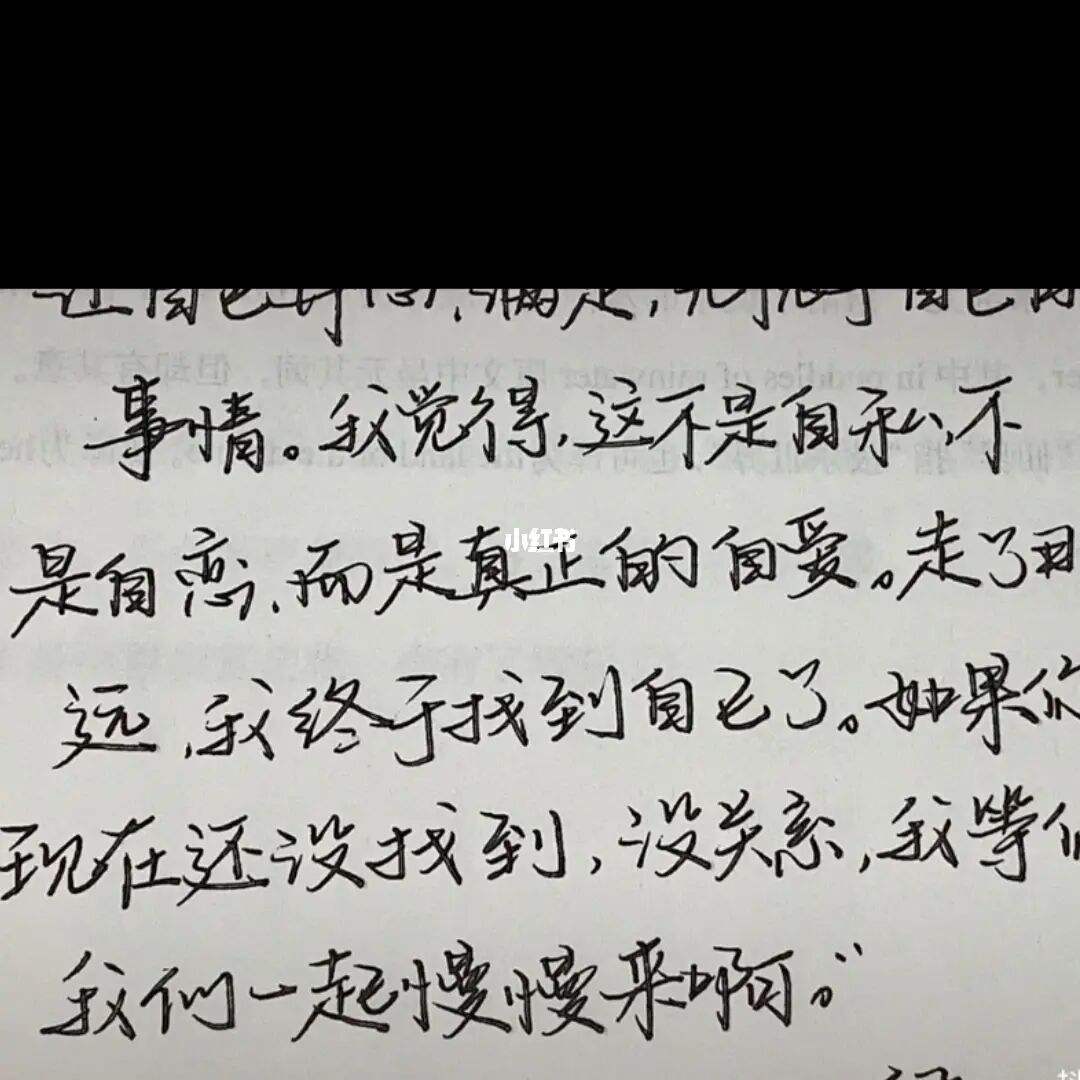 让自己舒心、满足,
事情。我觉得,这不是自私,不
是自恋,而是真正的自爱。走了
远,我终于找到自己了。如果你
现在还没找到,没关系,我等你
我们一起慢慢来啊。”
小红书